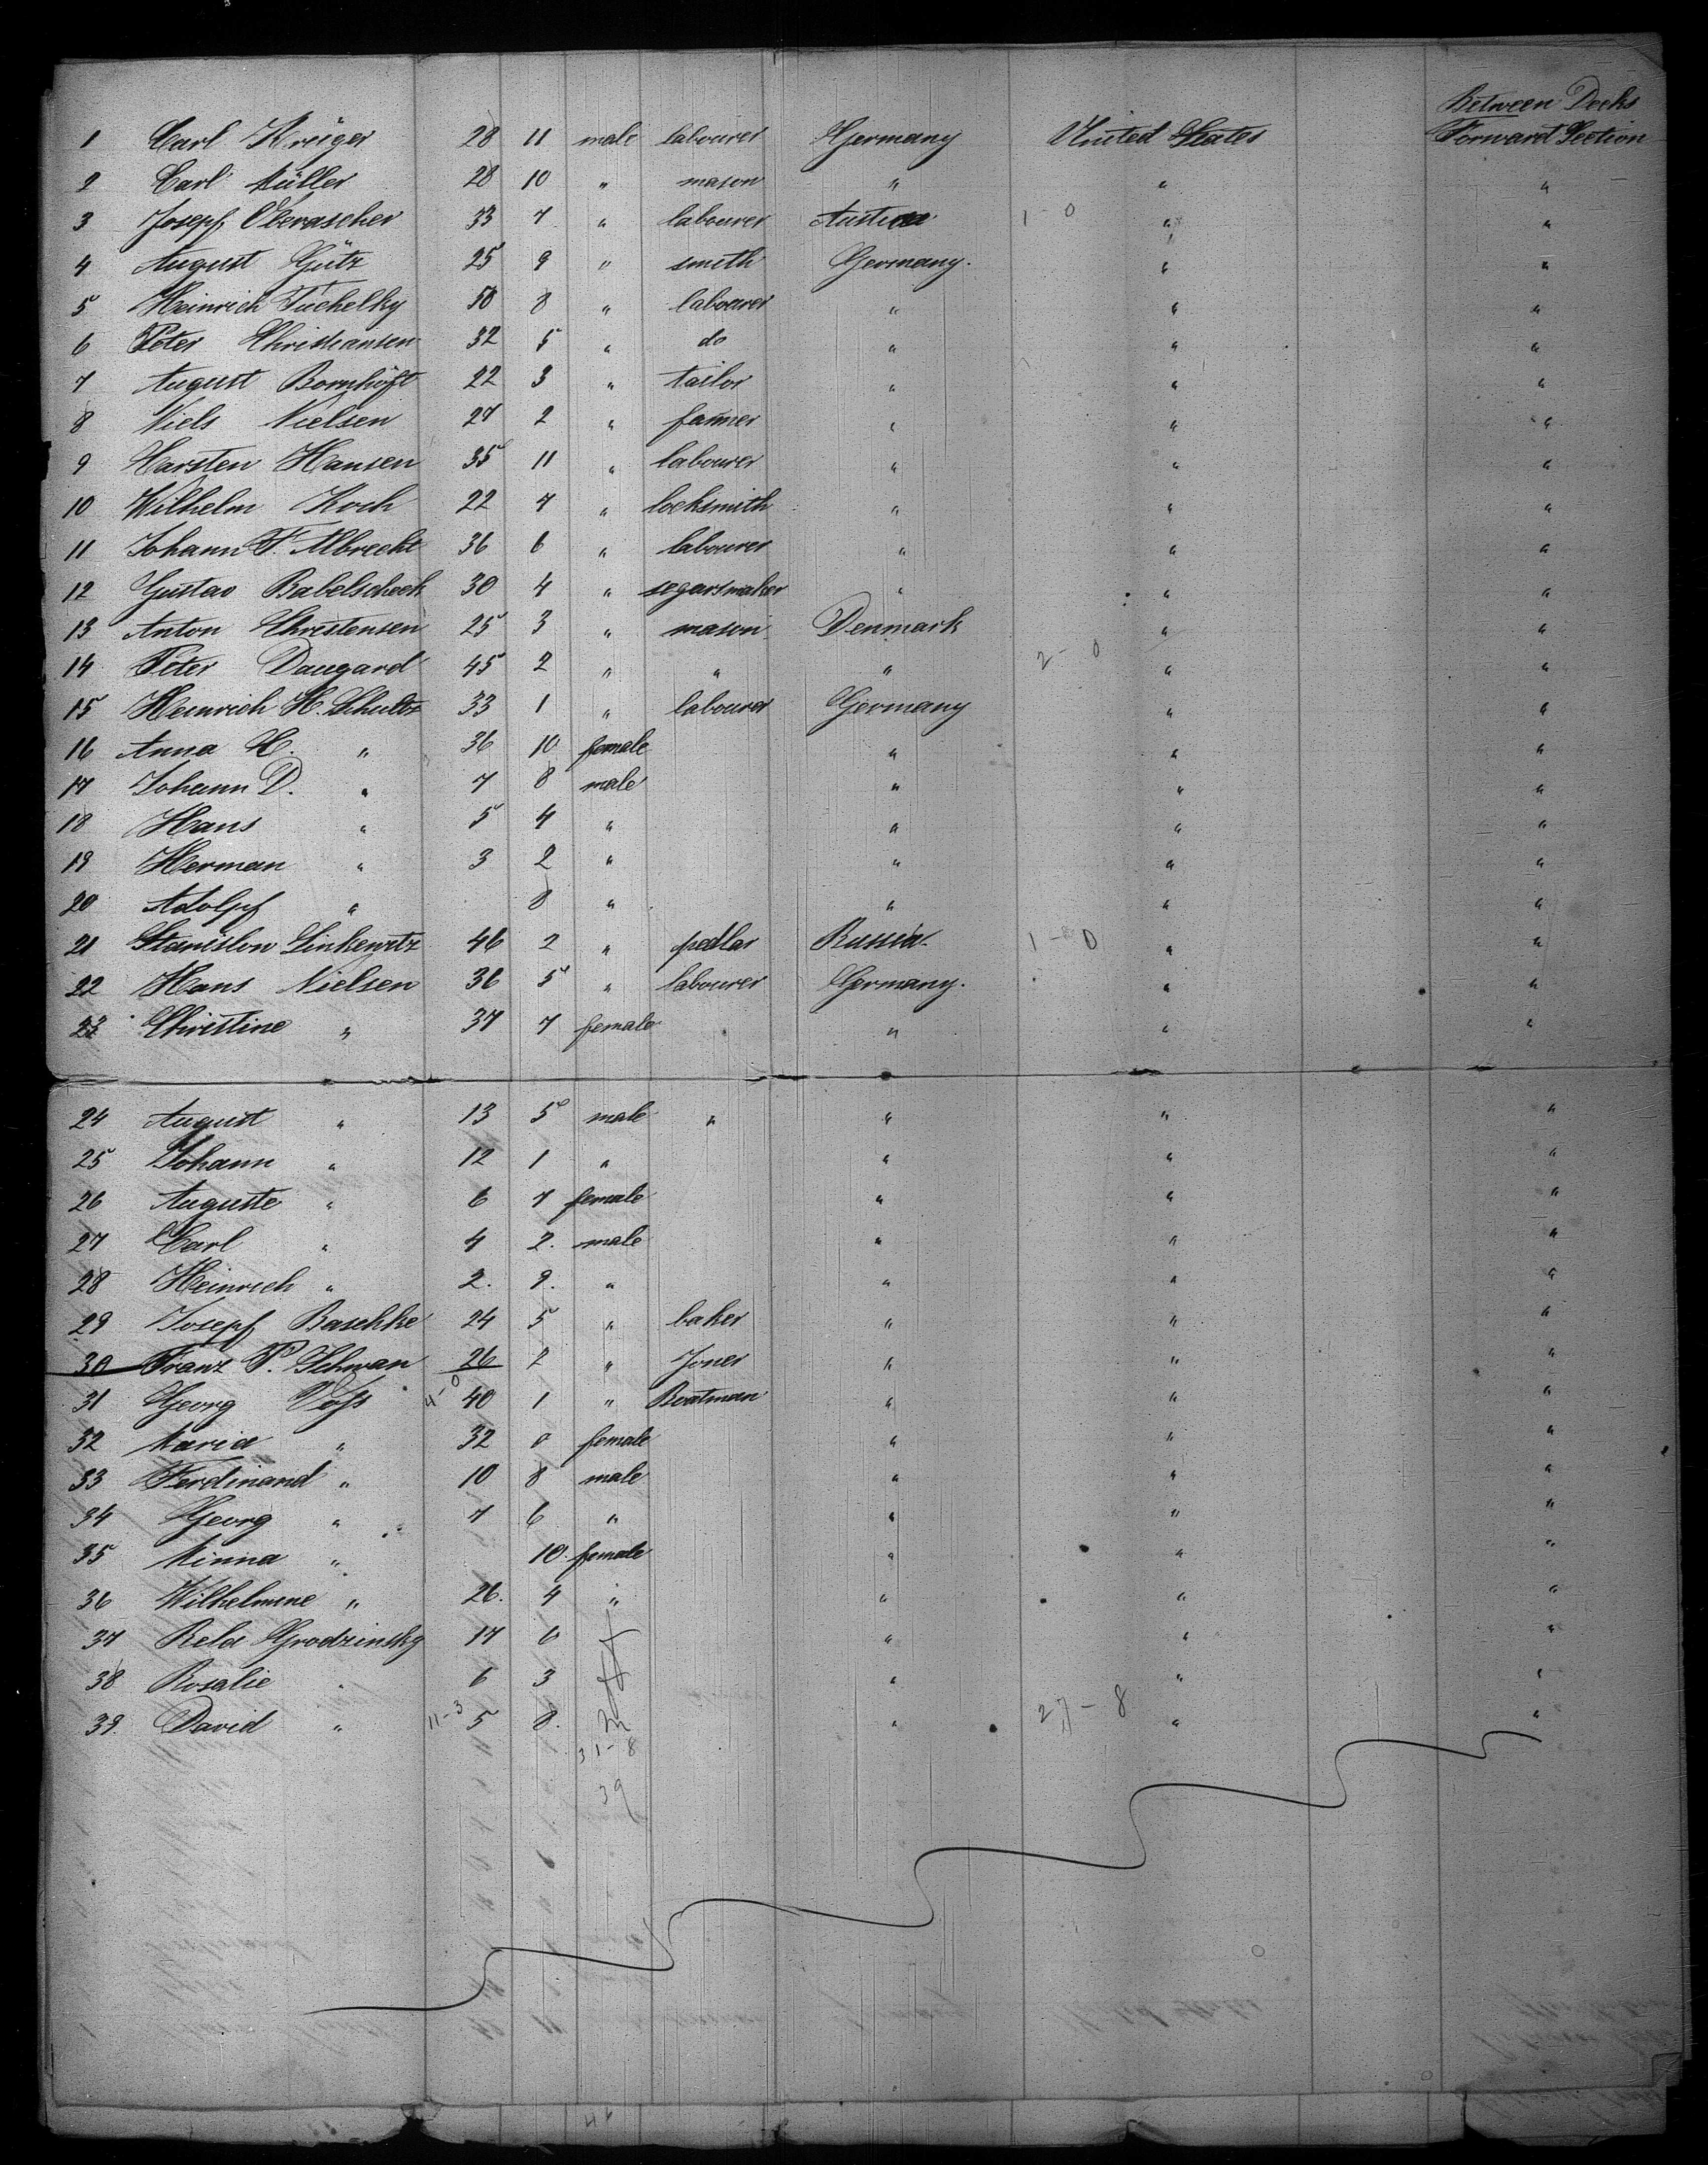 Between Decks
1 Carl Krüger 28 11 male labourer Germany United States Forward Section
2 Carl Müller 28 10 " mason " " "
3 Josepf Oberascher 33 7 " labourer Austria 1-0 " "
4 August Götz 25 9 " smith Germany. " "
5 Heinrich Tuchelky 50 8 " labourer " " "
6 Peter Christiansen 32 5 " do " " "
7 August Bornhöft 22 3 " tailor " " "
8 Niels Nielsen 27 2 " farmer " " "
9 Carsten Hansen 35 11 " labourer " " "
10 Wilhelm Koch 22 7 " locksmith " " "
11 Johann F. Albrecht 36 6 " labourer " " "
12 Gustav Babelscheck 30 4 " segarsmaker " " "
13 Anton Christensen 25 3 " mason Denmark " "
14 Peter Daugard 45 2 " " " 2-0 " "
15 Heinrich H. Schultz 33 1 " labourer Germany " "
16 Anna C. " 36 10 female " " "
17 Johann D. " 7 8 male " " "
18 Hans " 5 4 " " " "
19 Herman " 3 2 " " " "
20 Adolpf " 8 " " " "
21 Stanislon Linkewitz 46 2 " pedlar Russia 1-0 " "
22 Hans Nielsen 36 5 " labourer Germany. " "
23 Christine " 37 7 female " " "
24 August " 13 5 male " " " "
25 Johann " 12 1 " " " "
26 Auguste " 6 7 female " " "
27 Carl " 4 2. male " " "
28 Heinrich " 2. 9. " " " "
29 Josepf Baschke 24 5 " baker " " "
30 Franz P. Schwan 26 2 " Joner " " "
31 Georg Voss 4-0 40 1 " Boatman " " "
32 Maria " 32 female " " "
33 Ferdinand " 10 8 male " " "
34 Georg " 7 6 " " " "
35 Minna " 10. female " " "
36 Wilhelmine " 26. 4 " " " "
37 Bela Grodzinsky 17 6 f " " "
38 Rosalie " 6 3 f " " "
39. David " 11-3 5 8. m " 27-8 " "
31-8
39